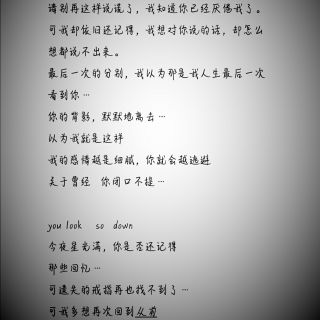 请别再这样说谎了，我知道你已经厌倦我了。
可我却依旧还记得，我想对你说的话，却怎么
想都说不出来。
最后一次的分别，我以为那是我人生最后一次
看到你…
你的背影，默默地离去…
以为我就是这样
我的感情越是细腻，你就会越逃避
关于曾经 你闭口不提…

you look so down
今夜星光满，你是否还记得
那些回忆…
可遗失的戒指再也找不到了…
可我多想再次回到从前